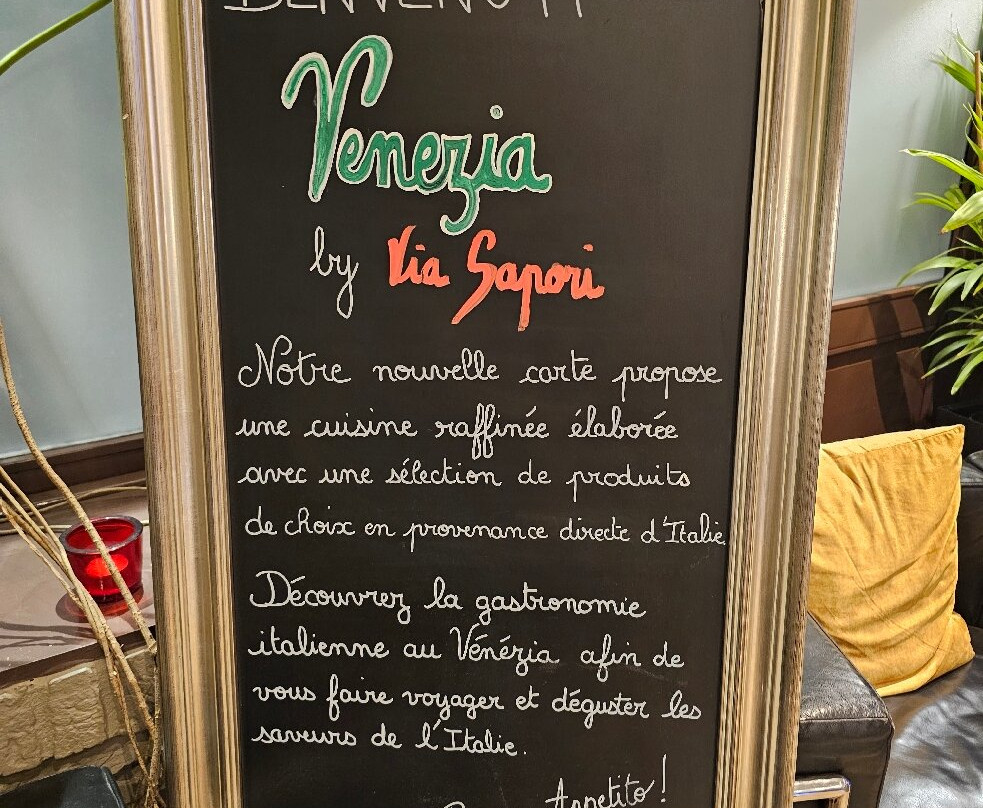 BENVENUTI
Venezia
by Via Sapori
Notre nouvelle carte propose
une cuisine raffinée élaborée
avec une sélection de produits
de choix en provenance directe d'Italie.
Découvrez la gastronomie
italienne au Vénézia afin de
vous faire voyager et déguster les
saveurs de l'Italie.
Appetito!